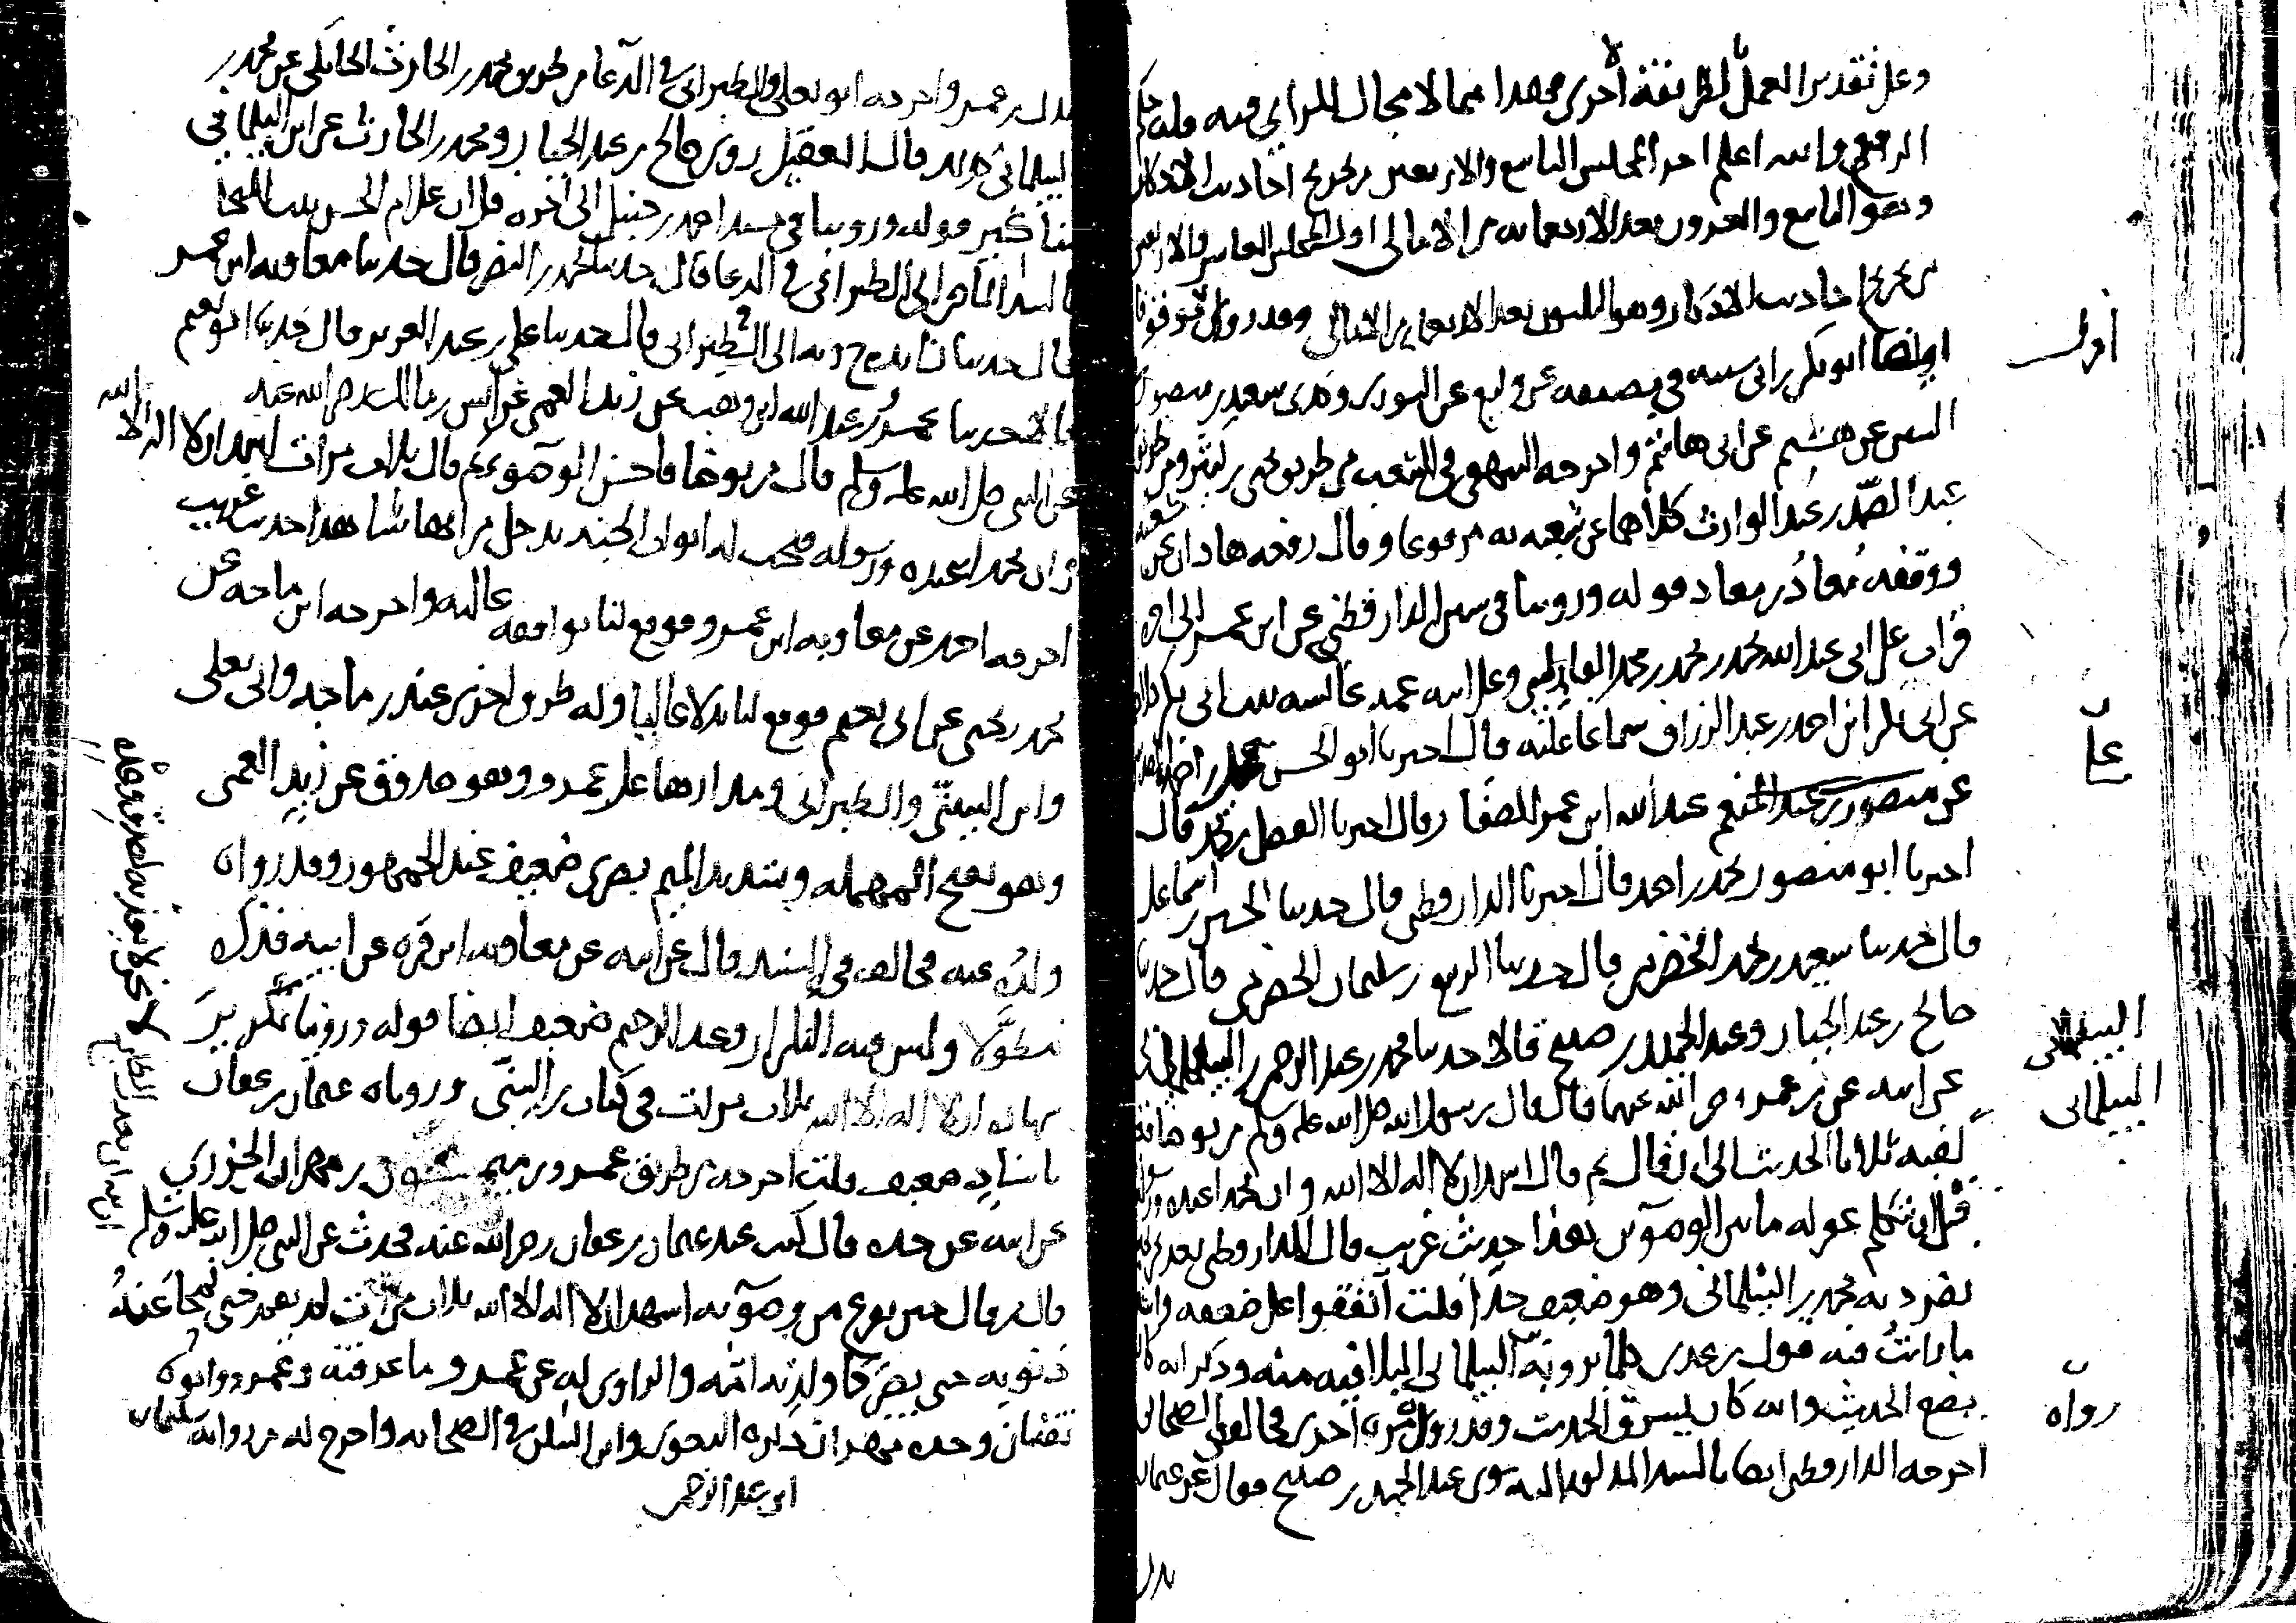 وعلى تقدير العمل لطريقة أخرى فهذا مما لا مجال للرأي فيه فله حكم
الرفع والله اعلم اخر المجلس التاسع والاربعين من تخريج احاديث الاذكار
وهو التاسع والعشرون بعد الاربعمايه من الامالي اول المجلس العاشر والاربعين
من تخريج احاديث الاذكار وهو الثلثون بعد الاربعمايه من الامالي وقد روي موقوفا
ايضا ابو بكر ابن ابي شيبه في مصنفه عن وكيع عن الثوري وكذى سعيد بن منصور
السنن عن هشيم عن ابي هاشم واخرجه البيهقي في الشعب من طريق يحيى بن كثير ومن طريق
عبد الصمد بن عبد الوارث كلاهما عن شعبه به مرفوعا وقال رفعه هاذان عن شعبه
ووقفه معاذ بن معاذ قوله وروينا في سنن الدارقطني عن ابن عمر الى اخره
قرات على ابي عبد الله محمد بن محمد بن محمد وعلى عائشه بنت ابي بكر
عن ابي بكر ابن احمد بن عبد الرزاق سماعا عليه قال اخبرنا ابو الحسن محمد بن
عن منصور بن عبد المنعم عبد الله ابن عمر الصفار قال اخبرنا الفضل بن محمد قال
اخبرنا ابو منصور محمد بن احمد قال اخبرنا الدارقطني قال حدثنا الحسين بن اسماعيل
قال حدثنا سعيد بن محمد الحضرمي قال حدثنا الربيع بن سليمان الحضرمي قال حدثنا
صالح بن عبد الجبار وعبد الحميد بن صبيح قالا حدثنا محمد بن عبد الرحمن بن البيلماني
عن ابيه عن بن عمر رضى الله عنهما قال قال رسول الله صلى الله عليه وسلم من توضا
كفيه ثلاثا الحديث الى ان قال ثم قال اشهد ان لا اله الا الله وان محمدا عبده ورسوله
قبل ان يتكلم غفر له ما بين الوضوين هذا حديث غريب قال الدارقطني بعد تخريجه
تفرد به محمد بن البيلماني وهو ضعيف جدا قلت اتفقوا على ضعفه واشد
ما رايت فيه قول بن عدي كلما يرويه البيلماني البلا فيه منه وذكر انه كان
يضع الحديث وانه كان يسرق الحديث وقد رواه مره اخرى فخالف الصحابي
اخرجه الدارقطني ايضا بالسند المذكور اليه سوى عبد الحميد بن صبيح فقال عن عثمان
اول
على
البيلماني
البيلماني
رواه
بدل
بدل بن عمر واخرجه ابو يعلى والطبراني في الدعا من طريق محمد بن الحارث الحارثي عن محمد بن
البيلماني قال العقيلي روى صالح بن عبد الجبار ومحمد بن الحارث عن ابن البيلماني
مناكير قوله وروينا في مسند احمد بن حنبل الى اخره قرات على ام الحسن بنت المنجا
بالسند الماضي الى الطبراني في الدعا قال حدثنا محمد بن النضر قال حدثنا معاويه ابن عمرو
قال حدثنا زائده ح وبه الى الطبراني قال حدثنا علي بن عبد العزيز قال حدثنا ابو نعيم
قالا حدثنا عمرو بن عبد الله ابن وهب عن زيد العمي عن انس بن مالك رضى الله عنه
عن النبي صلى الله عليه وسلم قال من توضا فاحسن الوضوء ثم قال ثلاث مرات اشهد ان لا اله الا الله
وان محمدا عبده ورسوله فتحت له ابواب الجنه يدخل من ايها شا هذا حديث غريب
اخرجه احمد عن معاويه ابن عمرو فوقع لنا موافقه عاليه واخرجه ابن ماجه عن
محمد بن يحيى عن ابي نعيم فوقع لنا بدلا عاليا وله طرق اخرى عند بن ماجه وابي يعلى
وابن السني والطبراني ومدارها على عمرو وهو صدوق عن زيد العمي
وهو بفتح المهمله وتشديد الميم بصرى ضعيف عند الجمهور وقد رواه
ولده عنه فخالف في السند قال عن ابيه عن معاويه ابن قره عن ابيه فذكره
مطولا وليس فيه التكرار وعبد الرحيم ضعيف ايضا قوله وروينا تكرير
شهاده ان لا اله الا الله ثلاث مرات في كتاب بن السني ورواه عثمان بن عفان
باسناد ضعيف قلت اخرجه من طريق عمرو بن ميمون بن مهران الجزري
عن ابيه عن جده قال كنت عند عثمان بن عفان رضى الله عنه فحدث عن النبي صلى الله عليه وسلم
قال من قال حين يفرغ من وضوئه اشهد ان لا اله الا الله ثلاث مرات لم يقم حتى تمحا عنه
ذنوبه حتى يصير كما ولدته امه والراوي له عن عمرو ما عرفته وعمرو وابوه
ثقتان وجده مهران ذكره البغوى وابن السكن في الصحابه واخرج له من روايه سليمان
ابن عبد الرحمن